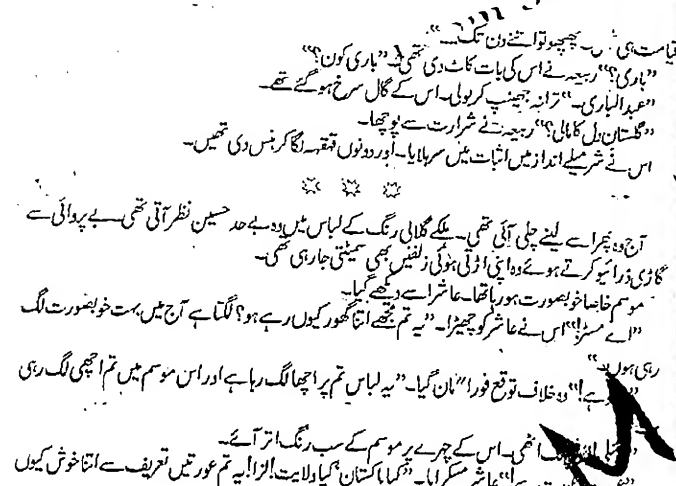 قیامت ہی پھپھو تو اتنے دن تک۔۔۔۔"
"باری؟" ربیعہ نے اس کی بات کاٹ دی تھی۔ "باری کون؟"
"عبدالباری۔" ترانہ جھینپ کر بولی۔ اس کے گال سرخ ہو گئے تھے۔
"گلستان دل کا مالی؟" ربیعہ نے شرارت سے پوچھا۔
اس نے شرمیلے انداز میں اثبات میں سر ہلایا۔ اور دونوں قہقہہ لگا کر ہنس دی تھیں۔
آج وہ پھر اسے لینے چلی آئی تھی۔ ہلکے گلابی رنگ کے لباس میں وہ بے حد حسین نظر آتی تھی۔ بے پروائی سے
گاڑی ڈرائیو کرتے ہوئے وہ اپنی اڑتی ہوئی زلفیں بھی سمیٹتی جا رہی تھی۔
موسم خاصا خوبصورت ہو رہا تھا۔ عاشر اسے دیکھے گیا۔
"اے مسٹر!" اس نے عاشر کو چھیڑا۔ "یہ تم مجھے اتنا گھور کیوں رہے ہو؟ لگتا ہے آج میں بہت خوبصورت لگ
رہی ہوں۔"
ہے!" وہ خلاف توقع فوراً مان گیا۔ "یہ لباس تم پر اچھا لگ رہا ہے اور اس موسم میں تم اچھی لگ رہی
اٹھی۔ اس کے چہرے پر موسم کے سب رنگ اتر آئے۔
عاشر مسکرایا۔ "کیا پاکستان، کیا ولایت! لزا! یہ تم عورتیں تعریف سے اتنا خوش کیوں